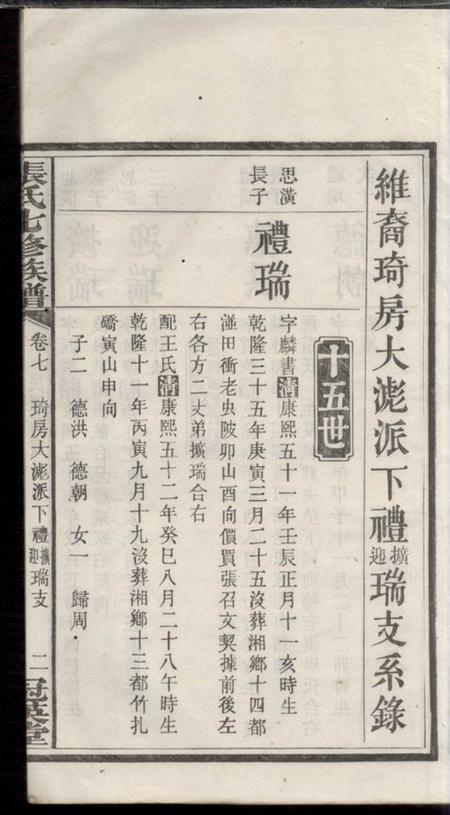 維裔琦房大滮派下禮擴迎瑞支系錄
十五世
思潢長子
禮瑞
字麟書清康熙五十一年壬辰正月十一亥時生
乾隆三十五年庚寅三月二十五沒葬湘鄉十四都
湴田衝老虫陂卯山酉向價買張召文契據前後左
右各方二丈弟擴瑞合右
配王氏清康熙五十二年癸巳八月二十八午時生
乾隆十一年丙寅九月十九沒葬湘鄉十三都竹扎
礄寅山申向
子二 德洪 德朝 女一 歸周
張氏七修族譜
卷七 琦房大滮派下禮擴迎瑞支 二
冠英堂